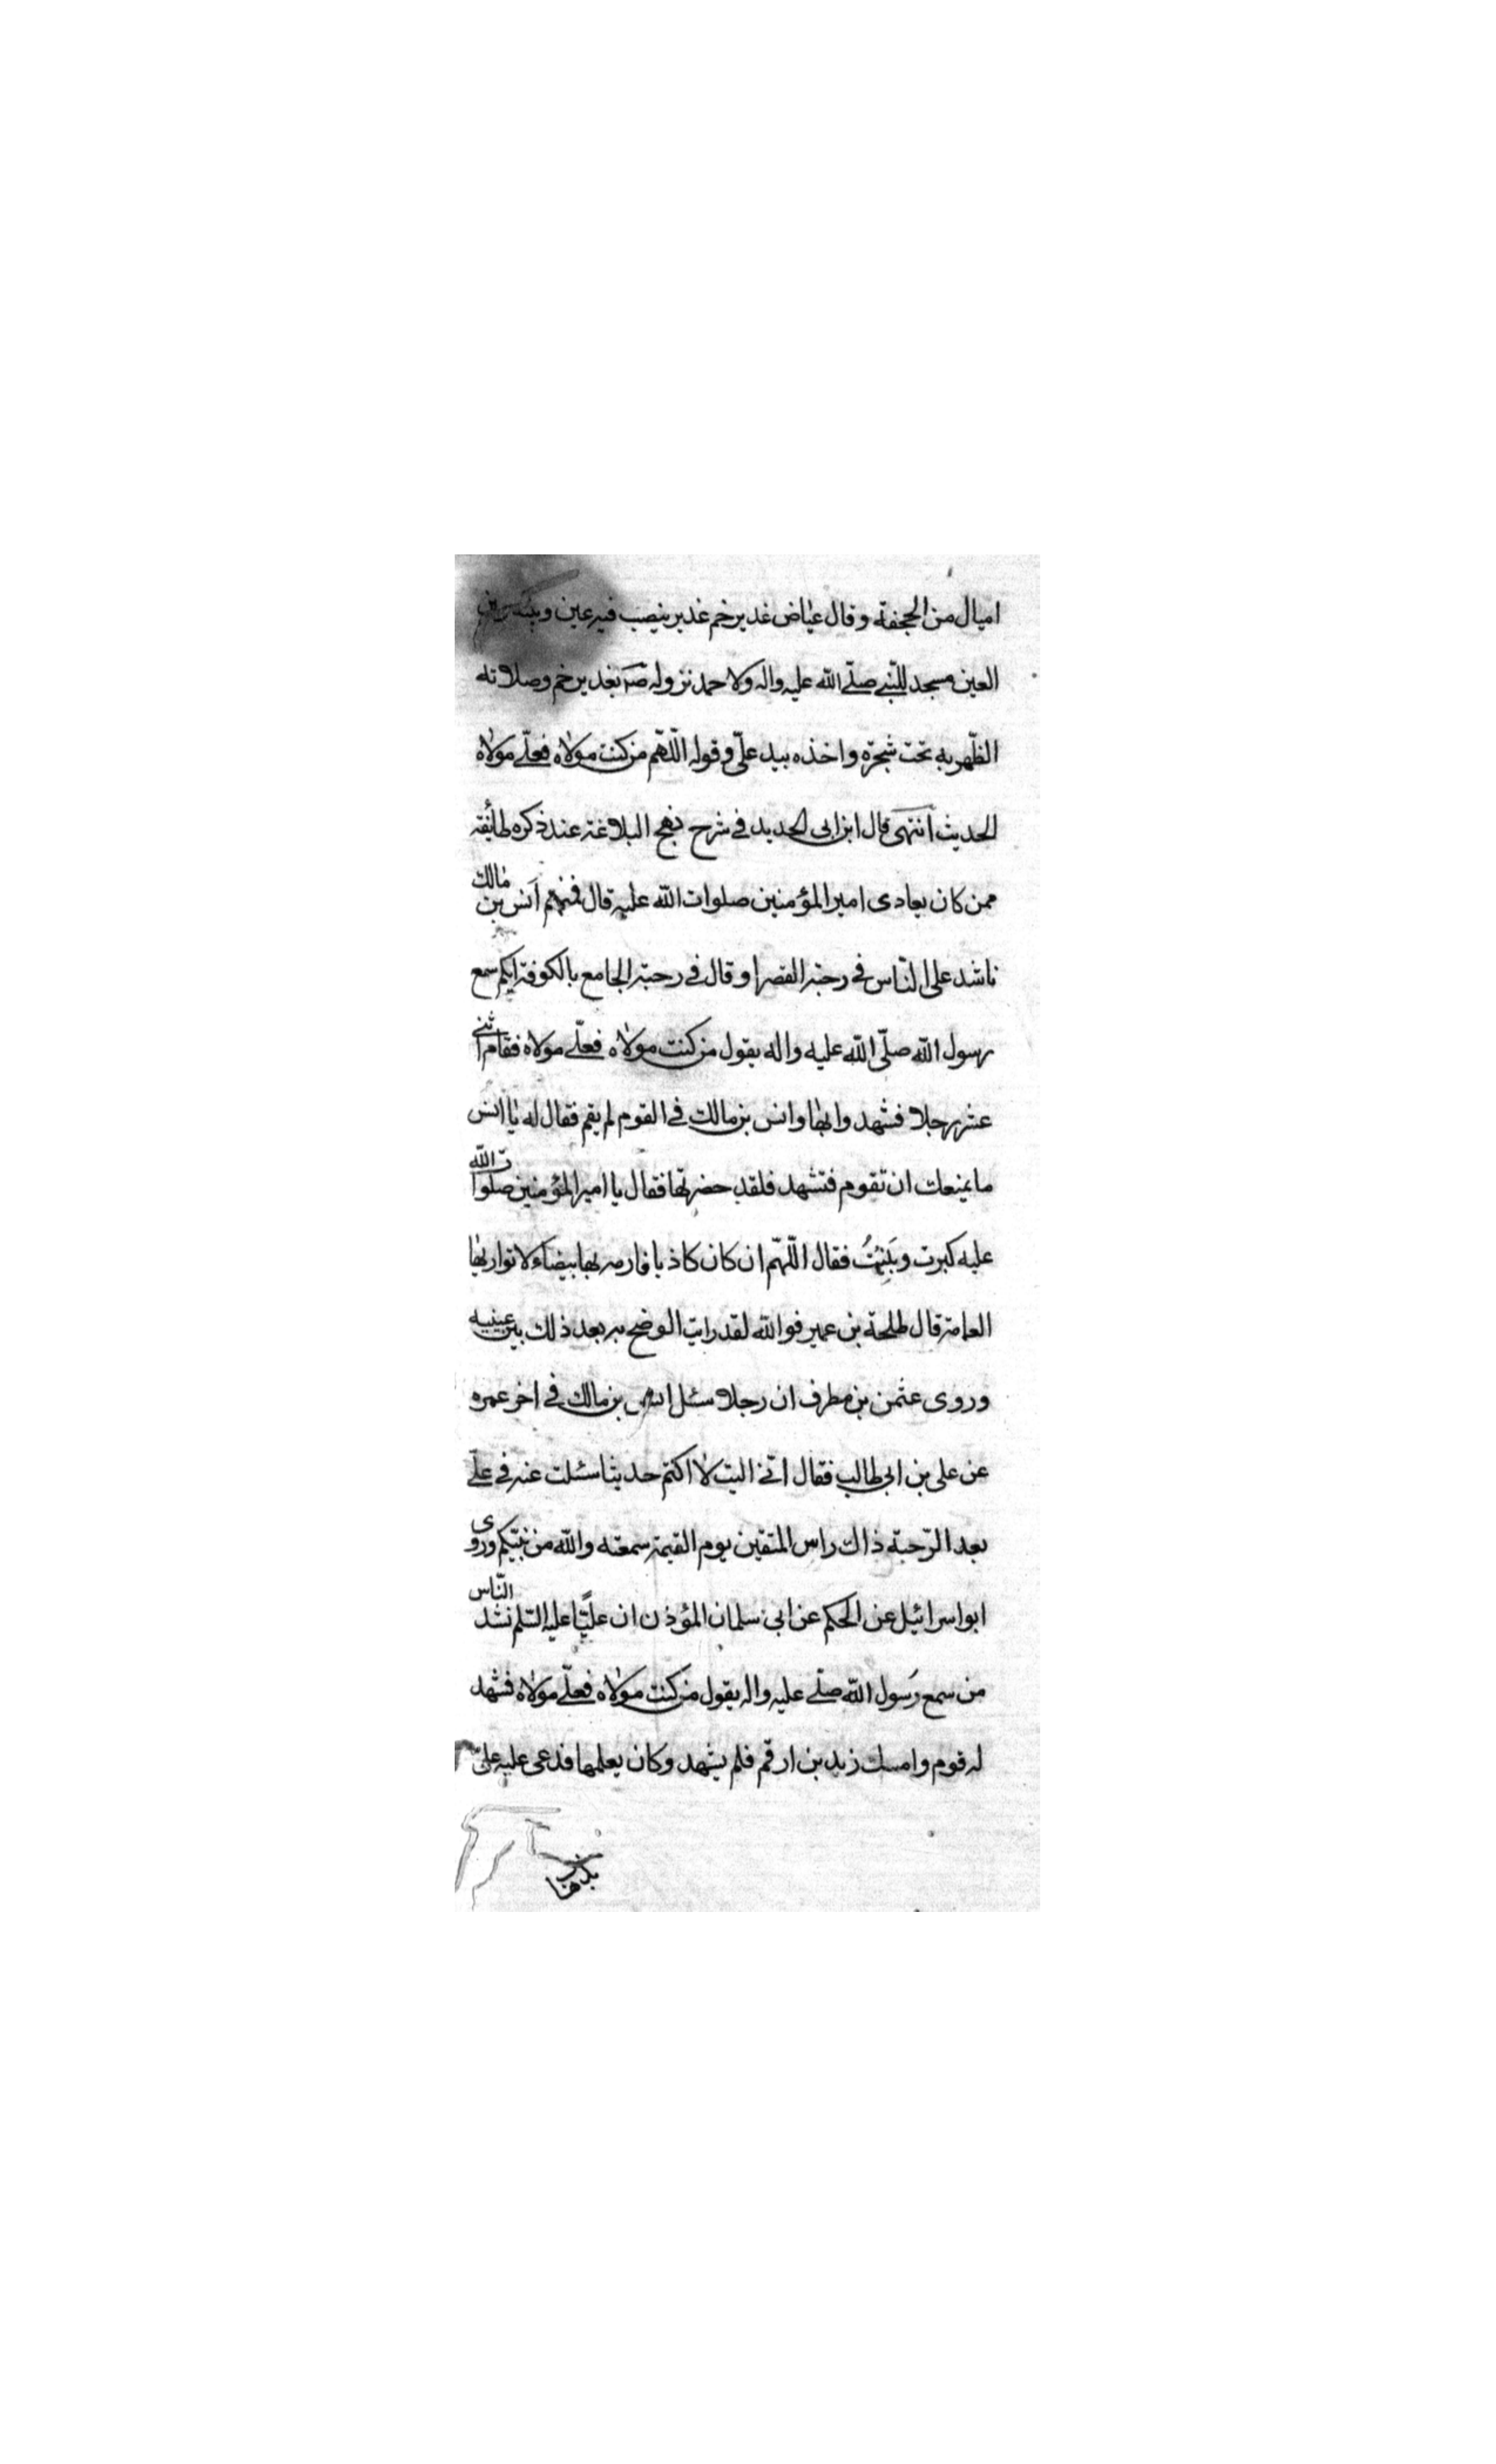 اميال من الجحفة وقال عياض غدير خم غدير ينصب فيه عين وبينه وبين
العين مسجد للنّبي صلّى الله عليه واله ولاحمد نزوله صَ بغدير خم وصلاته
الظّهر به تحت شجرة واخذه بيد علىّ وقوله اللّهّم من كنت مولاه فعلّي مولاه
الحديث انتهى قال ابن ابى الحديد في شرح نهج البلاغة عند ذكره طائفة
ممن كان يعادى امير المؤمنين صلوات الله عليه قال فمنهم انس بن مالك
ناشد على النّاس فى رحبة القصر او قال فى رحبة الجامع بالكوفة ايكم سمع
رسول الله صلّى الله عليه واله يقول من كنت مولاه فعلّي مولاه فقام اثنى
عشر رجلا فشهدوا بها وانس بن مالك فى القوم لم يقم فقال له يا انس
ما يمنعك ان تقوم فتشهد فلقد حضرتها فقال يا امير المؤمنين صلوات الله
عليه كبرت ونسيتُ فقال اللّهّم ان كان كاذبا فارمه بها بيضاء لا تواريها
العمامة قال طلحة بن عمير فوالله لقد رايت الوضح به بعد ذلك بين عينيه
وروى عثمن بن مطرف ان رجلا سئل انس بن مالك فى اخر عمره
عن على بن ابى طالب فقال انّى اليت لا اكتم حديثا سئلت عنه فى علّي
بعد الرّحبة ذاك راس المتقين يوم القيمة سمعته والله من نبيّكم وروى
ابو اسرائيل عن الحكم عن ابى سلمان المؤذن ان عليًّا عليه السّلم نشد النّاس
من سمع رَسول الله صلّي عليه واله يقول من كنت مولاه فعلّي مولاه فشهد
له قوم وامسك زيد بن ارقم فلم يشهد وكان يعلمها فدعى عليه علىّ